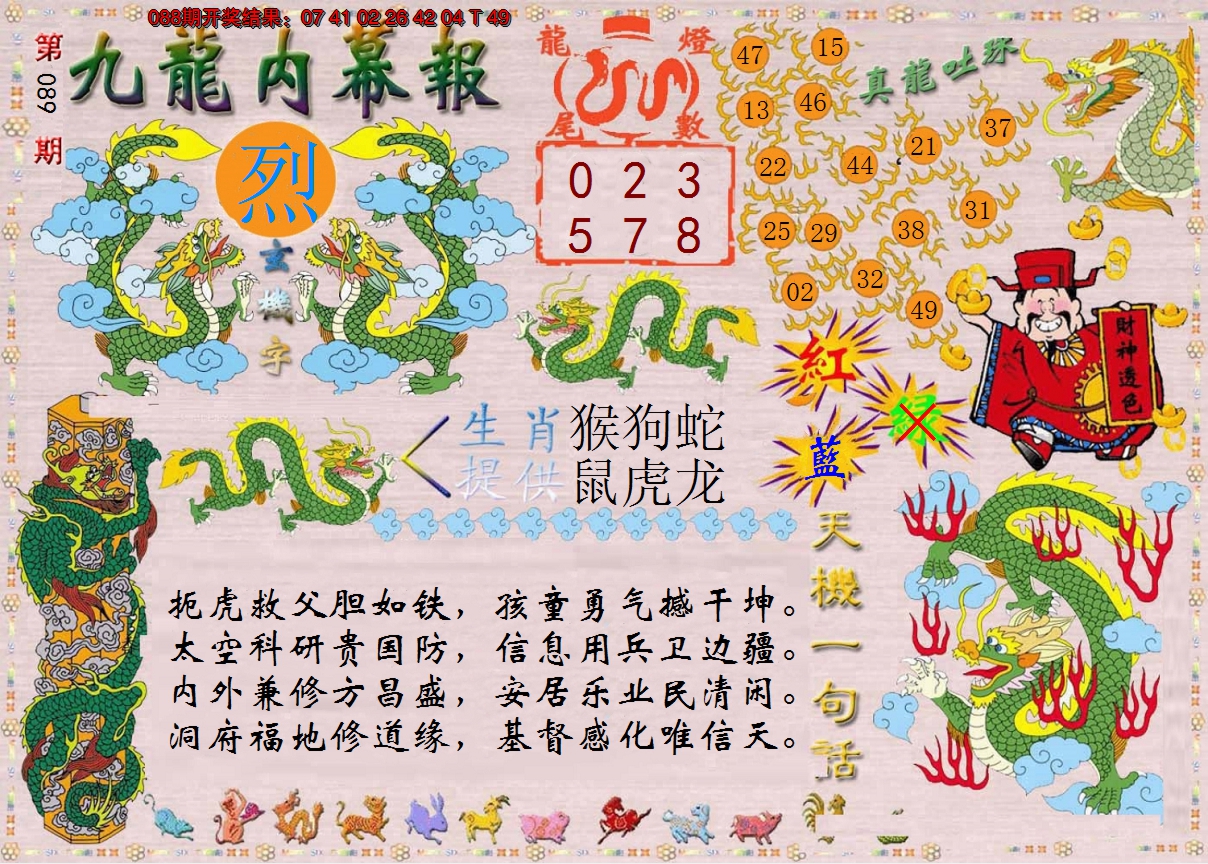 088期开奖结果：07 41 02 26 42 04 T 49
第089期
九龍内幕報
烈
玄機字
龍燈尾數
0 2 3
5 7 8
真龍吐珠
47 15
13 46
22 44 21 37
25 29 38 31
02 32 49
財神透色
紅
緑
藍
生肖 猴狗蛇
提供 鼠虎龙
天機一句話
扼虎救父胆如铁，孩童勇气撼干坤。
太空科研贵国防，信息用兵卫边疆。
内外兼修方昌盛，安居乐业民清闲。
洞府福地修道缘，基督感化唯信天。